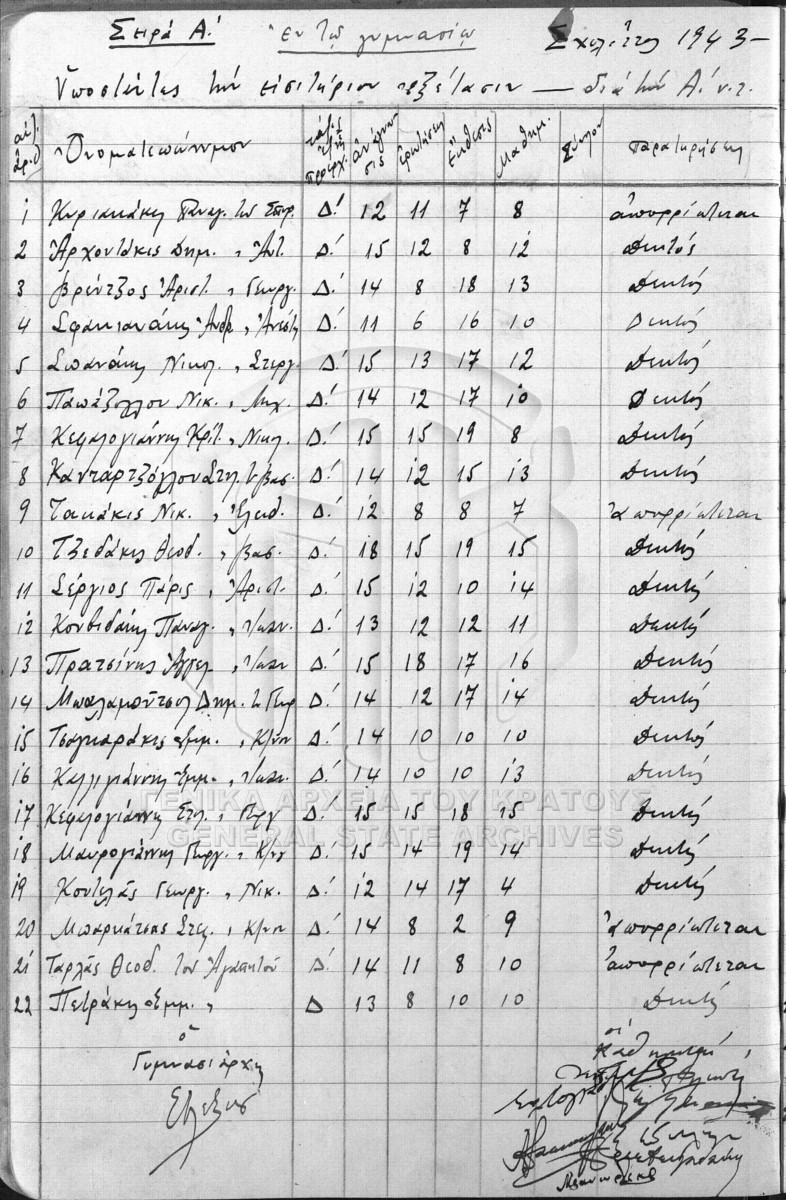 Σειρά Α΄ ἐν τῷ γυμνασίῳ Σχολ. ἔτος 1943-
Ὑποστάντες τὴν εἰσιτήριον ἐξέτασιν — διὰ τὴν Α΄. ν. τ.
αὔξ. ἀριθ. Ὀνοματεπώνυμον τάξις ἐξ ἧς προέρχ. ἀνάγνωσις ἐρωτήσεις Ἔκθεσις Μαθημ. Σύνολον παρατηρήσεις
1 Κυριακάκη Παναγ. τοῦ Σπυρ. Δ΄ 12 11 7 8 ἀπορρίπτεται
2 Ἀρχοντάκις Δημ. " Ἀντ. Δ΄ 15 12 8 12 Δεκτός
3 Βρέντζος Ἀριστ. " Γεωργ. Δ΄ 14 8 18 13 Δεκτός
4 Σφακιανάκης Ἀνδρ. " Ἀνέστη Δ΄ 11 6 16 10 Δεκτός
5 Σπανάκης Νικολ. " Στεργ. Δ΄ 15 13 17 12 Δεκτός
6 Παπάζογλου Νικ. " Μιχ. Δ΄ 14 12 17 10 Δεκτός
7 Κεφαλογιάννης Κρίτ. " Νικολ. Δ΄ 15 15 19 8 Δεκτός
8 Κανταρτζόγλου Στυλ. " Βασ. Δ΄ 14 12 15 13 Δεκτός
9 Τακάκις Νικ. " Ἐλευθ. Δ΄ 12 8 8 7 ἀπορρίπτεται
10 Τζεδάκις Θεοδ. " Βασ. Δ΄ 18 15 19 15 Δεκτός
11 Σέργιος Πάρις " Ἀριστ. Δ΄ 15 12 10 14 Δεκτός
12 Κουβιδάκης Παναγ. " Ἰωάν. Δ΄ 13 12 12 11 Δεκτός
13 Πρατσίνης Ἀγγελ. " Ἰωάν Δ΄ 15 18 17 16 Δεκτός
14 Μπαλαμοῦτσος Δημ. " Γεωρ Δ΄ 14 12 17 14 Δεκτός
15 Τσαγκαράκις Ἐμμ. " Κ/νου Δ΄ 14 10 10 10 Δεκτός
16 Καλιγιάννης Ἐμμ. " Ἰωάν. Δ΄ 14 10 10 13 Δεκτός
17 Κεφαλογιάννης Στυλ. " Γεωργ Δ΄ 15 15 18 15 Δεκτός
18 Μαυρογιάννης Γεωργ. " Κ/νου Δ΄ 15 14 19 14 Δεκτός
19 Κουτελᾶς Γεωργ. " Νικ. Δ΄ 12 14 17 4 Δεκτός
20 Μπαρκάτσας Στελ. " Κ/νου Δ΄ 14 8 2 9 ἀπορρίπτεται
21 Ταρλᾶς Θεοδ. τοῦ Ἀγαπητοῦ Δ΄ 14 11 8 10 ἀπορρίπτεται
22 Πετράκης Ἐμμ. " Δ 13 8 10 10 Δεκτός
ΓΕΝΙΚΑ ΑΡΧΕΙΑ ΤΟΥ ΚΡΑΤΟΥΣ
GENERAL STATE ARCHIVES
ὁ
Γυμνασιάρχης
οἱ
Καθηγηταί